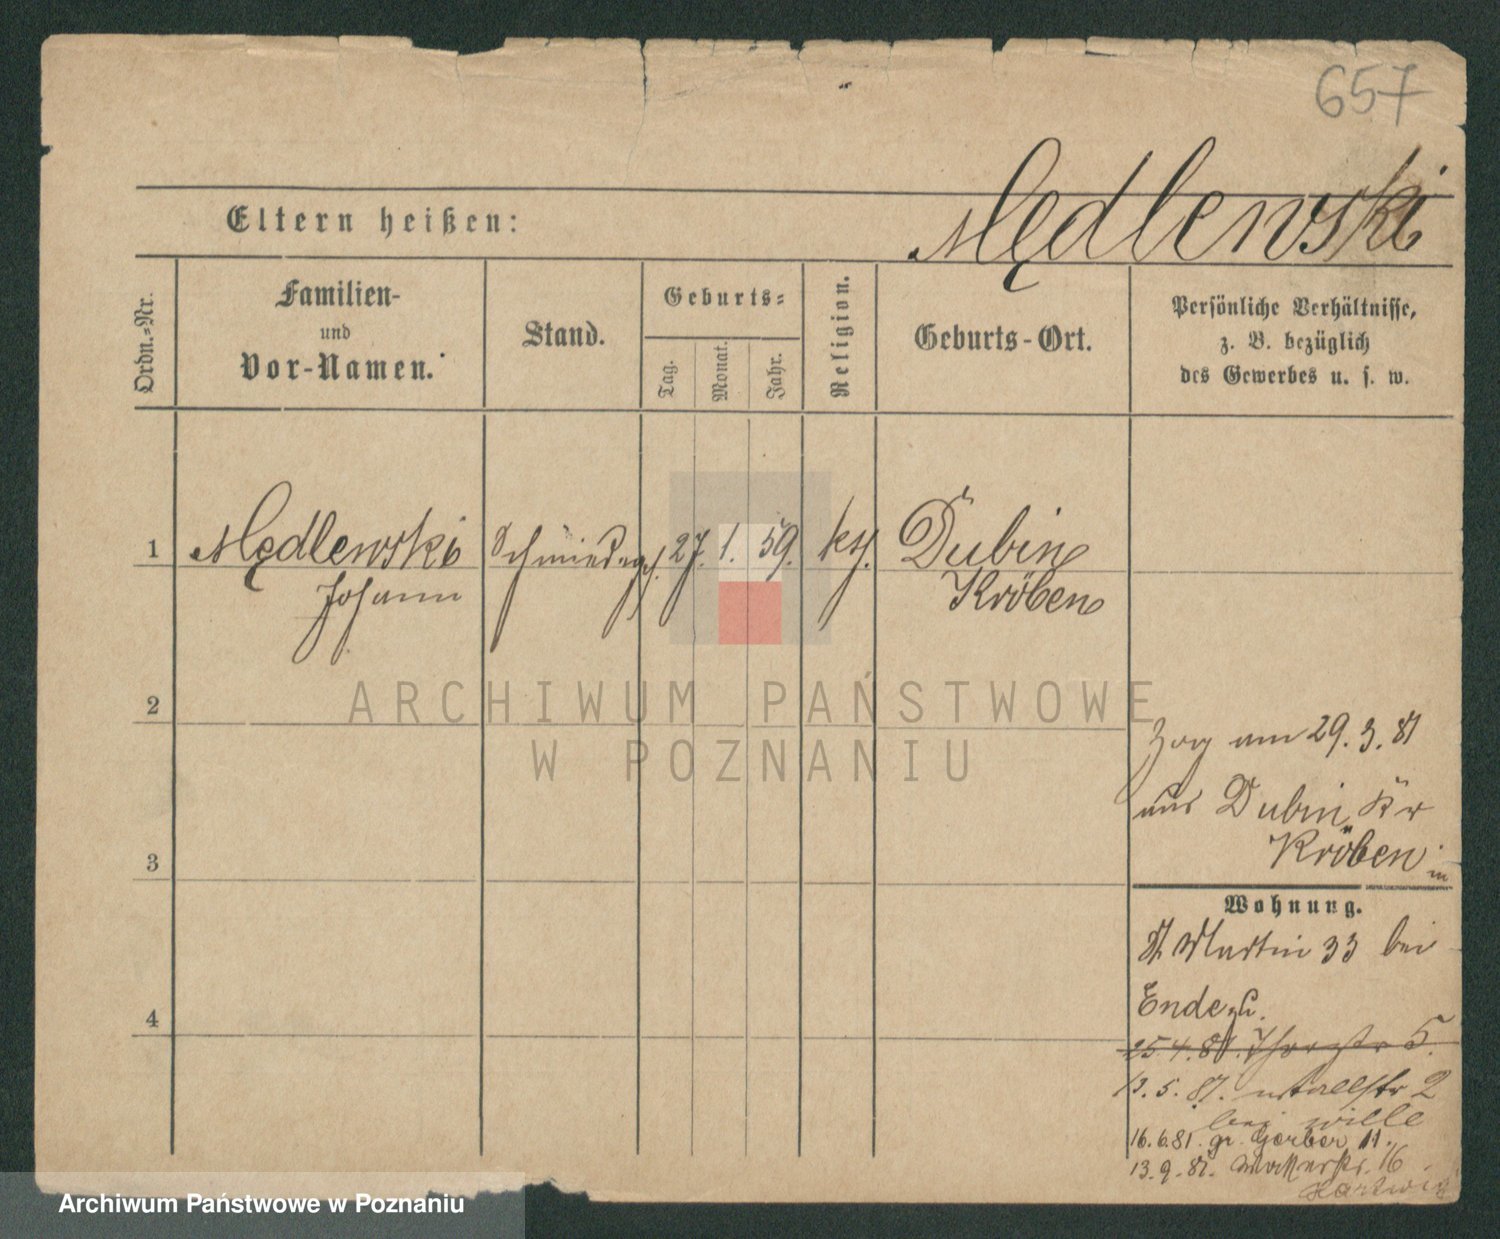 657
Mędlewski
Eltern heißen:
Ordn.-Nr.
Familien-
und
Vor-Namen.
Stand.
Geburts-
Tag.
Monat.
Jahr.
Religion.
Geburts-Ort.
Persönliche Verhältnisse,
z. B. bezüglich
des Gewerbes u. s. w.
1 Mędlewski Schmiedeges. 27. 1. 59. kth. Dubin
Johann Kröben
2
3
4
Zog am 29.3.81
aus Dubin Kr
Kröben
Wohnung.
St Martin 33 bei
Ende
25.4.81. Thorstr 5.
13.5.81. Wallstr 2
bei Wille
16.6.81. gr. Gerber 11.
13.9.81. 16
ARCHIWUM PAŃSTWOWE
W POZNANIU
Archiwum Państwowe w Poznaniu